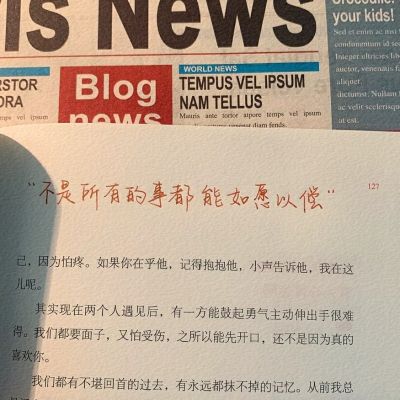 is News
crocodile!
your kids!
Sed et enim ac nisi
condimentum id sce
Integer ultricies libe
auctor, venenatis f
aliquet
dictumst. Nullam
ac velit scelerisque
at est.
RSTOR
ORA
Blog
news
WORLD NEWS
TEMPUS VEL IPSUM
NAM TELLUS
Mauris ante tortor atpore tempus vel ipsum
venenatis segut diam fends.
127
“不是所有的事都能如愿以偿”
己，因为怕疼。如果你在乎他，记得抱抱他，小声告诉他，我在这
儿呢。
其实现在两个人遇见后，有一方能鼓起勇气主动伸出手很难
得。我们都要面子，又怕受伤，之所以能先开口，还不是因为真的
喜欢你。
我们都有不堪回首的过去，有永远都抹不掉的记忆。从前我总